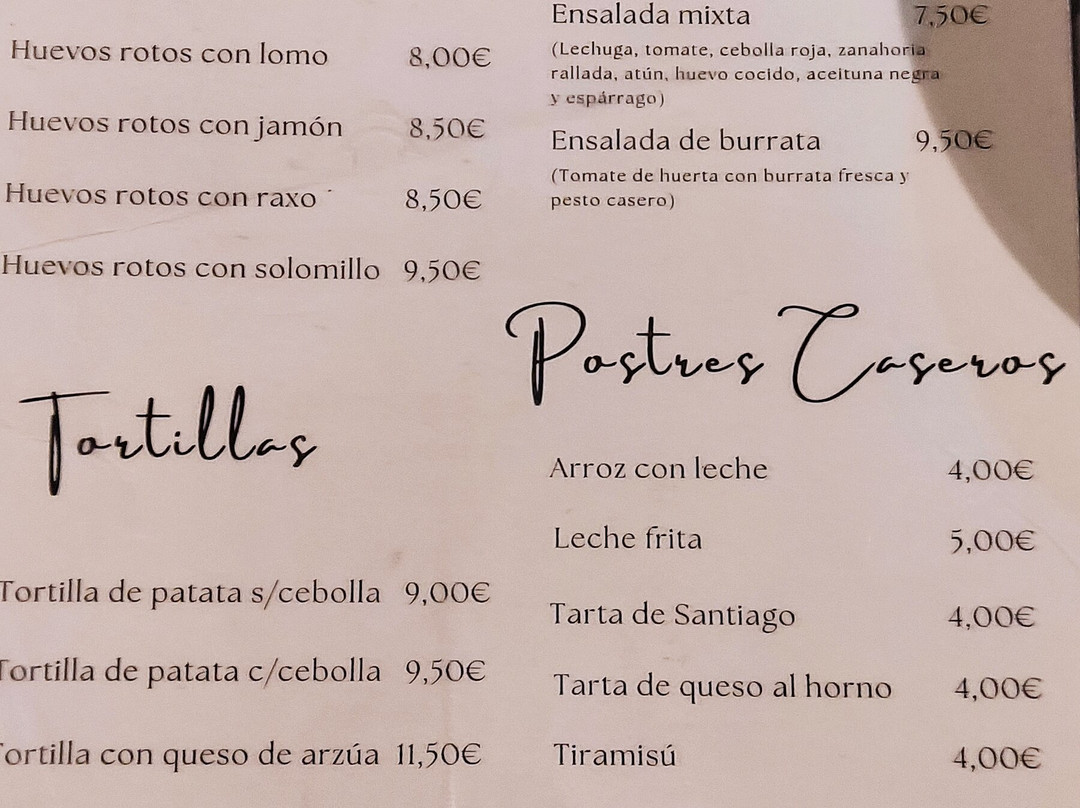 Huevos rotos con lomo 8,00€
Huevos rotos con jamón 8,50€
Huevos rotos con raxo 8,50€
Huevos rotos con solomillo 9,50€
Tortillas
Tortilla de patata s/cebolla 9,00€
Tortilla de patata c/cebolla 9,50€
Tortilla con queso de arzúa 11,50€
Ensalada mixta 7,50€
(Lechuga, tomate, cebolla roja, zanahoria
rallada, atún, huevo cocido, aceituna negra
y espárrago)
Ensalada de burrata 9,50€
(Tomate de huerta con burrata fresca y
pesto casero)
Postres Caseros
Arroz con leche 4,00€
Leche frita 5,00€
Tarta de Santiago 4,00€
Tarta de queso al horno 4,00€
Tiramisú 4,00€